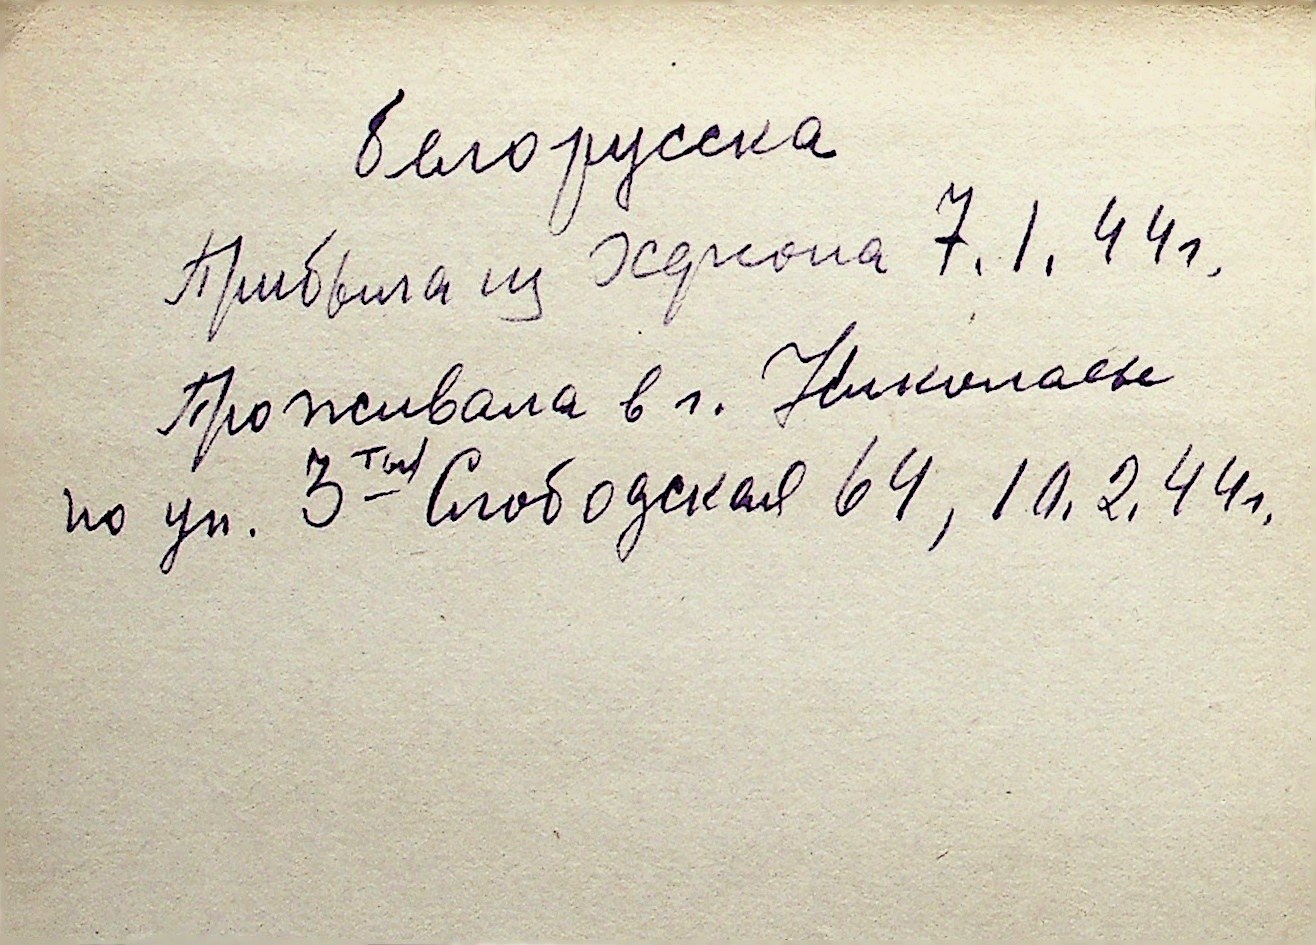 белорусска
Прибыла из Херсона 7.1.44г.
Проживала в г. Николаеве
по ул. 3тья Слободская 64, 10.2.44г.